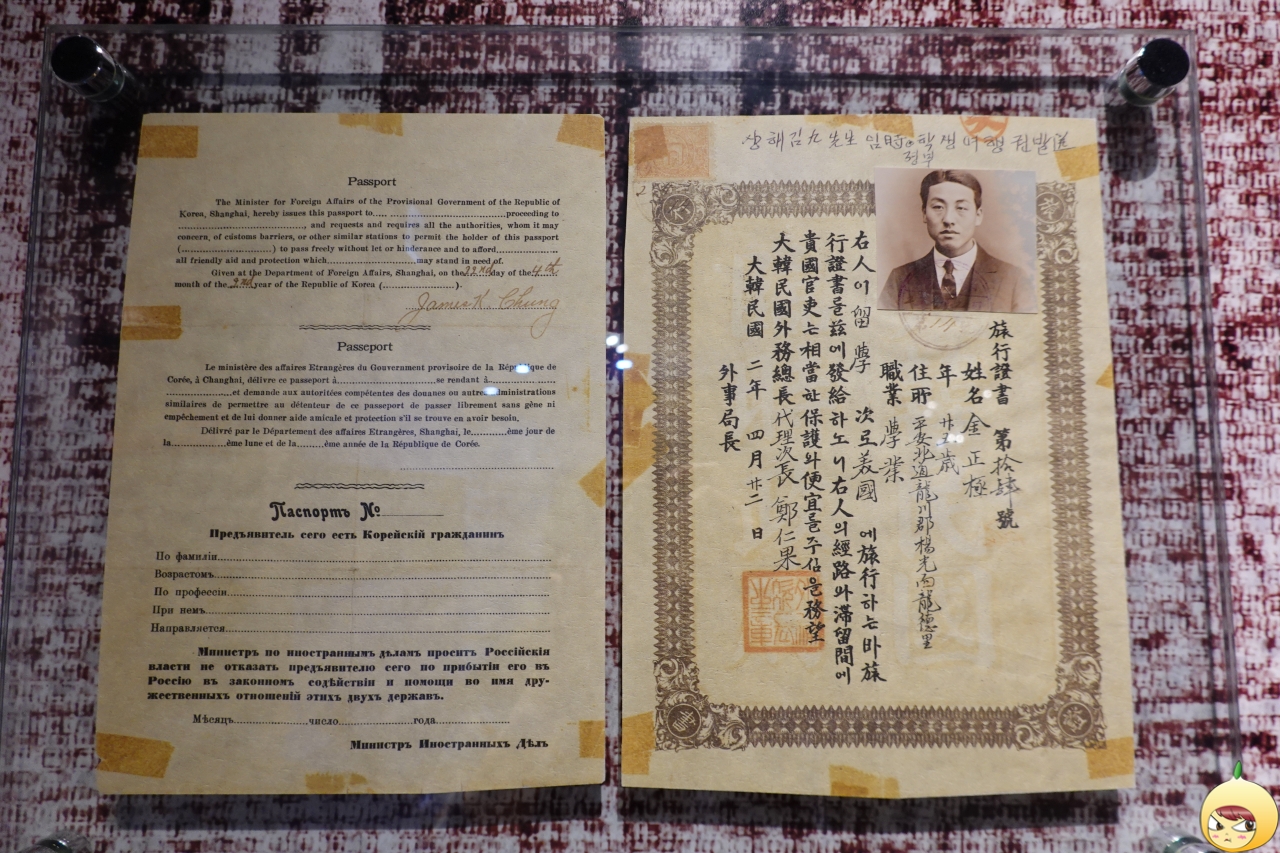 Passport
The Minister for Foreign Affairs of the Provisional Government of the Republic of
Korea, Shanghai, hereby issues this passport to.... ................................proceeding to
................................, and requests and requires all the authorities, whom it may
concern, of customs barriers, or other similar stations to permit the holder of this passport
(........................) to pass freely without let or hinderance and to afford..................
all friendly aid and protection which........................may stand in need of.
Given at the Department of Foreign Affairs, Shanghai, on the 22nd day of the 4th
month of the 2nd year of the Republic of Korea (....................).
James K. Chung
Passeport
Le ministère des affaires Etrangères du Gouvernment provisoire de la République de
Corée, à Changhai, délivre ce passeport à........................se rendant à..................
........................et demande aux autoritées compétentes des douanes ou autres administrations
similaires de permettre au détenteur de ce passeport de passer librement sans gêne ni
empêchement et de lui donner aide amicale et protection s'il se trouve en avoir besoin.
Délivré par le Département des affaires Etrangères, Shanghai, le..........ème jour de
la................ème lune et de la........ème année de la République de Corée.
Паспортъ №
Предъявитель сего есть Корейскій гражданинъ
По фамиліи
Возрастомъ
По профессіи
При немъ
Направляется
Министръ по иностраннымъ дѣламъ проситъ Россійскія
власти не отказать предъявителю сего по прибытіи его въ
Россію въ законномъ содѣйствіи и помощи во имя дру-
жественныхъ отношеній этихъ двухъ державъ.
Мѣсяцъ....................число....................года
Министръ Иностранныхъ Дѣлъ
상해김九先生 임時 학생여행권발送
정부
旅行證書 第拾肆號
姓名 金正極
年 廿五歲
住所 平安北道龍川郡楊光面龍德里
職業 學業
右人이 留學 次로 美國 에旅行하는바旅
行證書를玆에發給하노니右人의經路와滯留間에
貴國官吏는相當한保護와便宜를주심을務望
大韓民國外務總長代理次長 鄭仁果
大韓民國 二年 四月廿二 日
外事局長